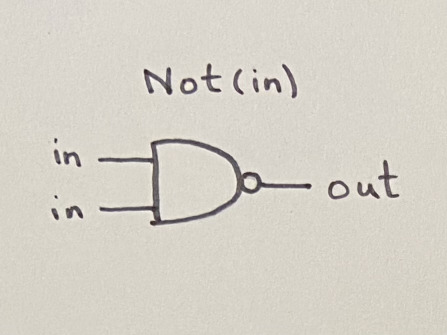 Not(in)
in
in
out